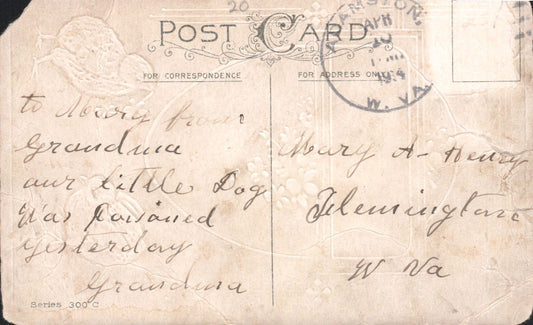 20
POST CARD
FOR CORRESPONDENCE
FOR ADDRESS ONLY
APR
1914
W. VA.
to Mary from
Grandma
our little Dog
Was Poisoned
yesterday
Grandma
Mary A- Henry
Flemington
W Va
Series 300 C